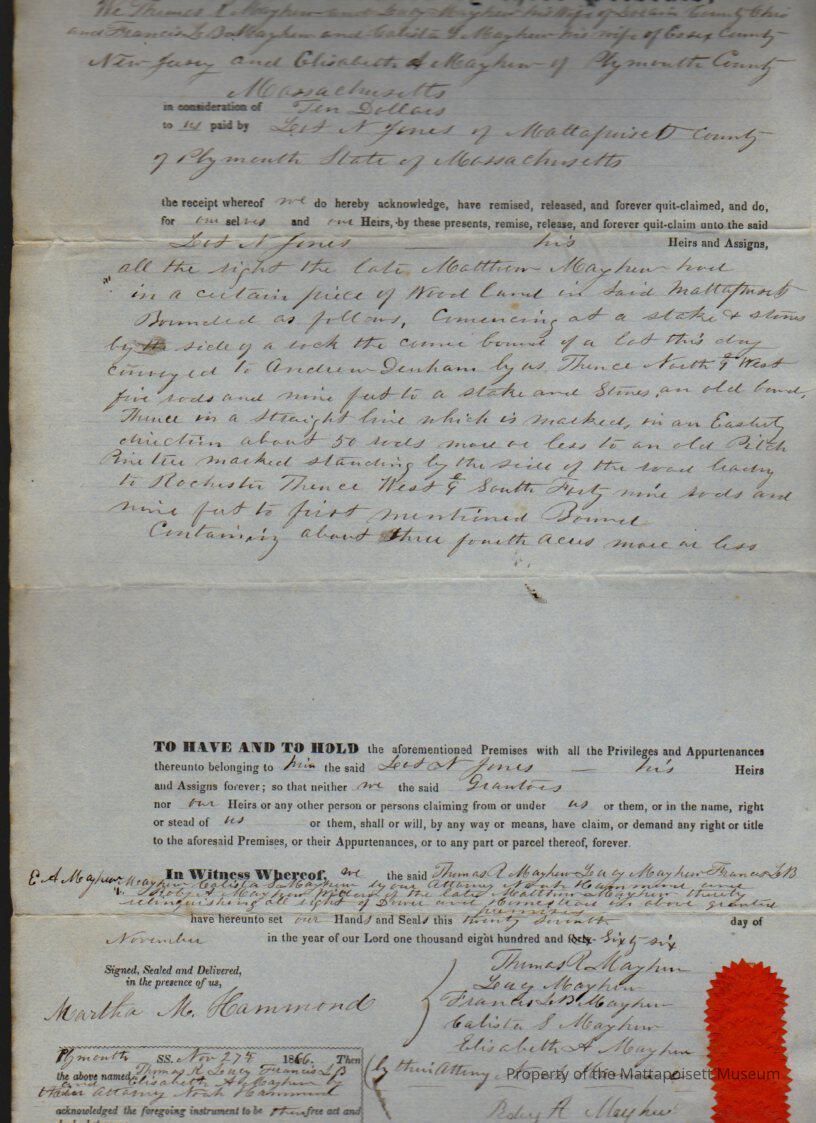 We Thomas R. Mayhew and Lucy Mayhew his Wife of Lorain County Ohio
and Francis L B Mayhew and Calista S Mayhew his wife of Essex County
New Jersey and Elisabeth A Mayhew of Plymouth County
Massachusetts
in consideration of Ten Dollars
to us paid by Lot N Jones of Mattapoisett County
of Plymouth State of Massachusetts
the receipt whereof we do hereby acknowledge, have remised, released, and forever quit-claimed, and do,
for our selves and our Heirs, by these presents, remise, release, and forever quit-claim unto the said
Lot N Jones his Heirs and Assigns,
all the right the late Matthew Mayhew had
in a certain piece of Wood Land in said Mattapoisett
Bounded as follows, Comencing at a stake & stones
by the side of a rock the corner bound of a lot this day
conveyed to Andrew Denham by us. Thence North West
five rods and nine feet to a stake and Stones, an old bound,
Thence in a straight line which is marked, in an Easterly
direction about 50 rods more or less to an old Pitch
Pine tree marked standing by the side of the road leading
to Rochester Thence West South Forty nine rods and
nine feet to first mentioned Bound
Containing about three fourth acres more or less
TO HAVE AND TO HOLD the aforementioned Premises with all the Privileges and Appurtenances
thereunto belonging to him the said Lot N Jones — his Heirs
and Assigns forever; so that neither we the said Grantors
nor our Heirs or any other person or persons claiming from or under us or them, or in the name, right
or stead of us or them, shall or will, by any way or means, have claim, or demand any right or title
to the aforesaid Premises, or their Appurtenances, or to any part or parcel thereof, forever.
In Witness Whereof, we the said Thomas R Mayhew Lucy Mayhew Francis L B
E A Mayhew Mayhew Calista S Mayhew by our Attorney Noah Hammond and
Mayhew Widow of the late Matthew Mayhew hereby
relinquishing all right of Dower and Homestead in above granted
premises
have hereunto set our Hands and Seals this twenty seventh day of
November in the year of our Lord one thousand eight hundred and Sixty six
Signed, Sealed and Delivered,
in the presence of us,
Martha M. Hammond
Thomas R Mayhew
Lucy Mayhew
Francis L B Mayhew
Calista S Mayhew
Elisabeth A Mayhew
by their Attorney
Mayhew
Plymouth SS. Nov 27th 1866. Then
the above named Thomas R Lucy Francis L B
and Elisabeth A Mayhew by
their Attorney Noah Hammond
acknowledged the foregoing instrument to be their free act and
Property of the Mattapoisett Museum